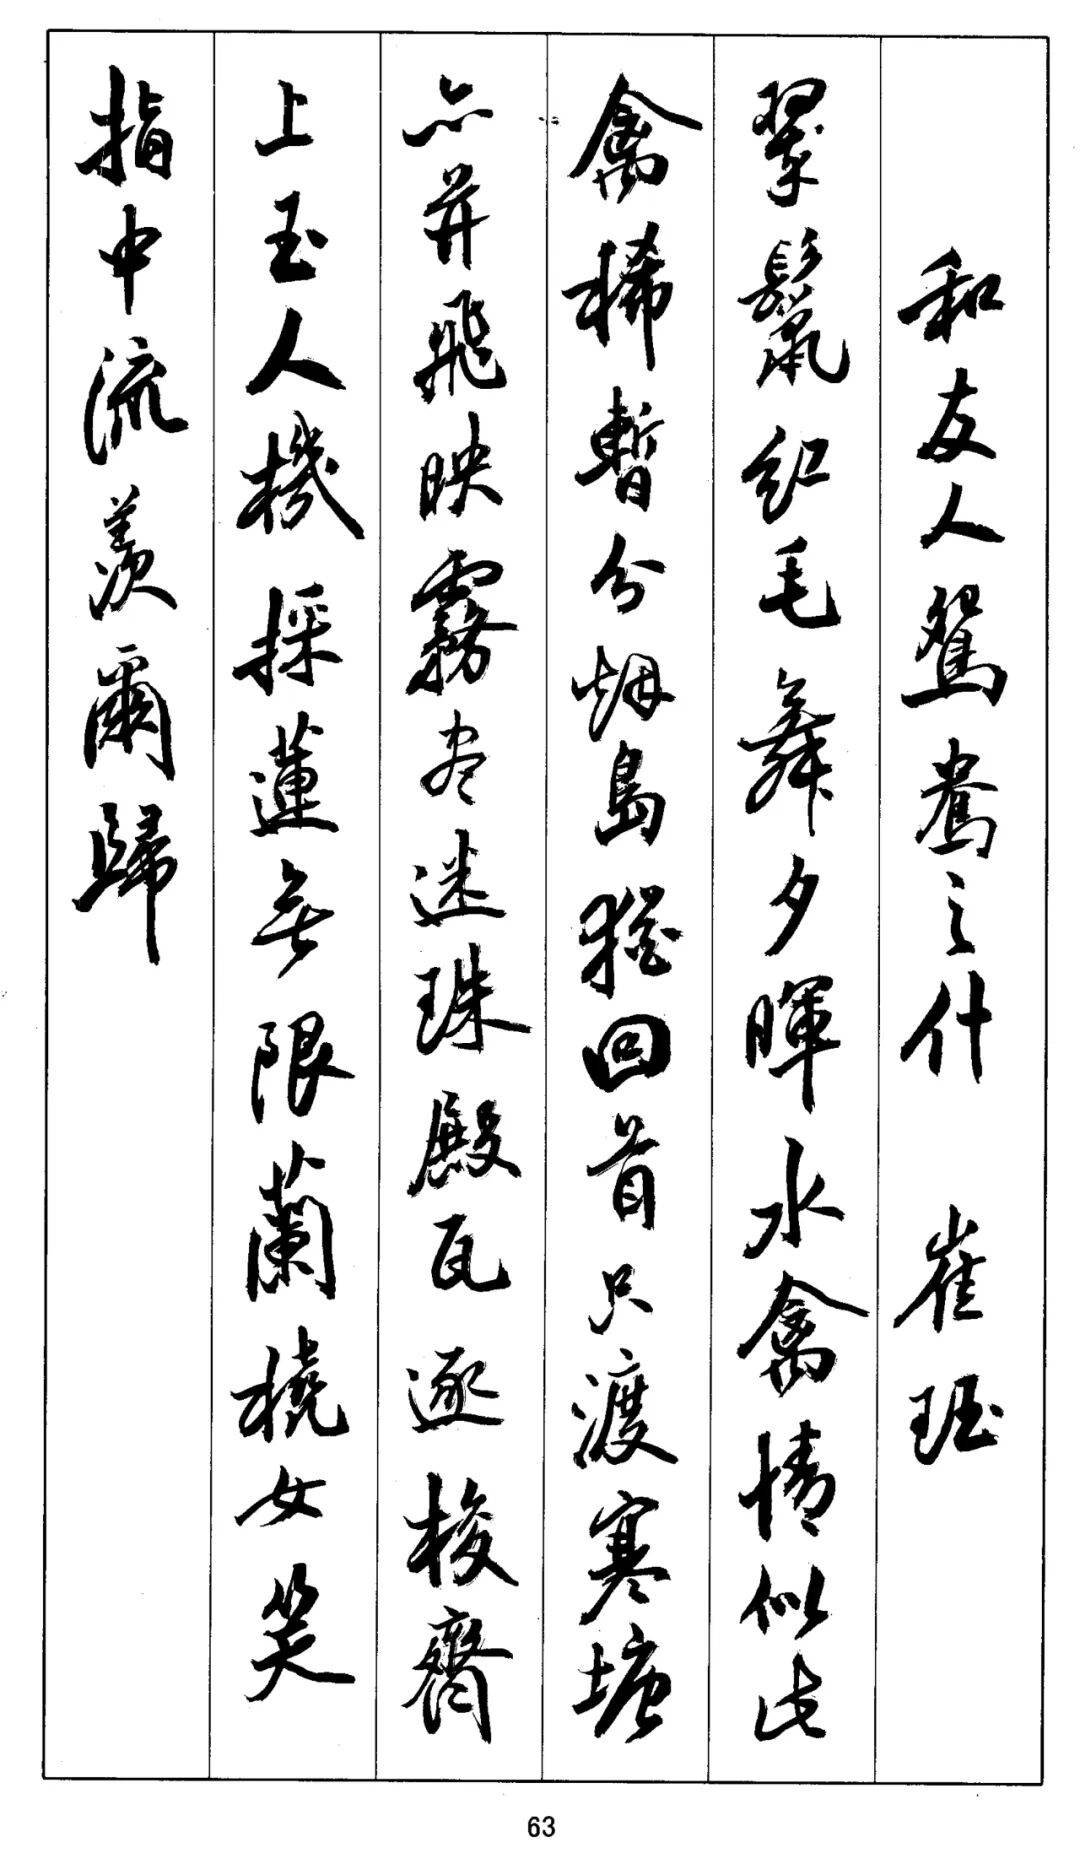 和友人鴛鴦之什 崔珏
翠鬣紅毛舞夕暉水禽情似此
禽稀暫分烟島猶回首只渡寒塘
亦并飛映霧尽迷珠殿瓦逐梭齊
上玉人機採蓮無限蘭橈女笑
指中流羨爾歸
63